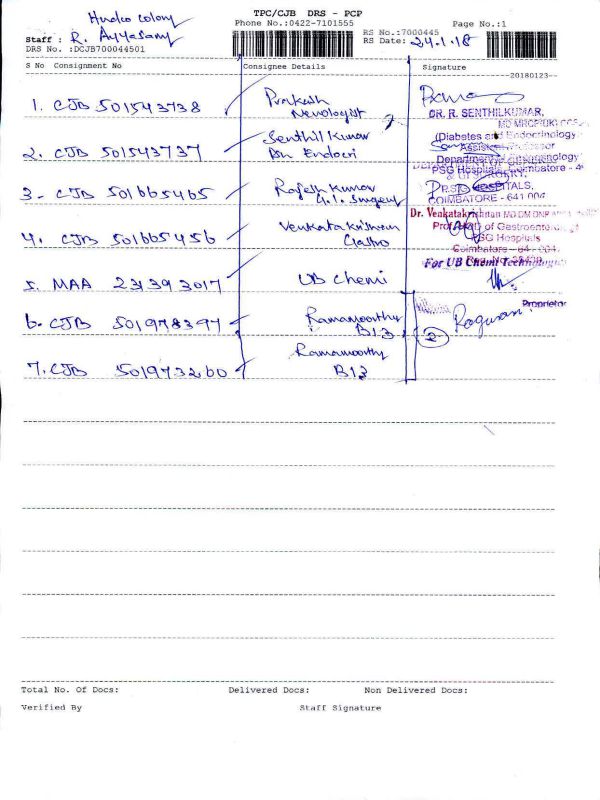 Hudco colony
TPC/CJB DRS - PCP
Phone No.:0422-7101555
Page No.:1
Staff : R. Ayyasamy
RS No.:7000445
DRS No. :DCJB700044501
RS Date: 24.1.18
S No Consignment No Consignee Details Signature
20180123
1. CJB 501543738 Prakash
Nerologist
DR. R. SENTHILKUMAR,
(Diabetes and Endocrinology
2. CJB 501543737 Senthil Kumar
Dn Endocri
Assistant Professor
PSG Hospitals, Coimbatore - 4
3. CJB 501665465 Rajesh Kumar
G.I. Surgeon
HOSPITALS,
COIMBATORE - 641 004
Dr. Venkatakrishnan MD DM DNB
4. CJB 501665456 Venkatakrishnan
Gastro
Prof of Gastroenterology
PSG Hospitals
Coimbatore - 64 - 004
Reg. No
For UB Chemi Technologies
5. MAA 231393017 UB Chemi
Proprietor
6. CJB 501978397 Ramamoorthy
B13
2 Raguvan
7. CJB 501973260 Ramamoorthy
B13
Total No. Of Docs: Delivered Docs: Non Delivered Docs:
Verified By Staff Signature